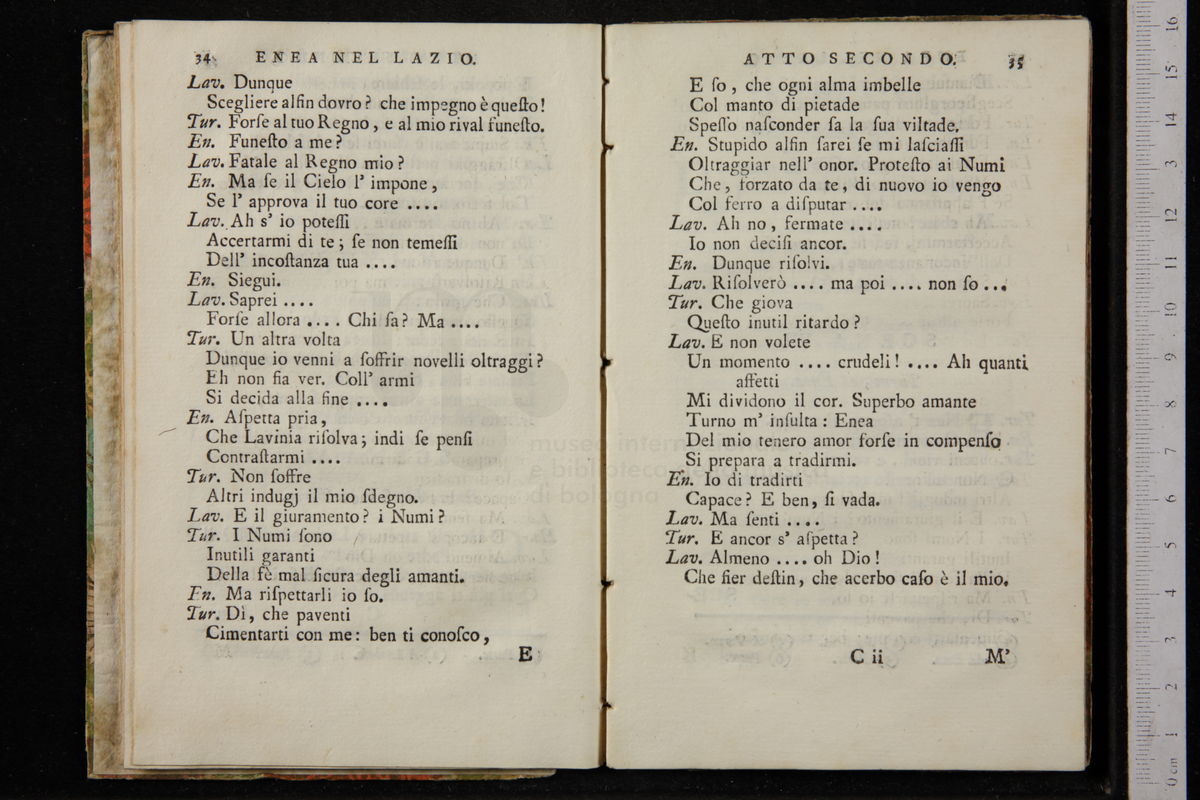 34 ENEA NEL LAZIO.
Lav. Dunque
Scegliere alfin dovro? che impegno è queſto!
Tur. Forſe al tuo Regno, e al mio rival funeſto.
En. Funeſto a me?
Lav. Fatale al Regno mio?
En. Ma ſe il Cielo l' impone,
Se l' approva il tuo core ....
Lav. Ah s' io poteſſi
Accertarmi di te; ſe non temeſſi
Dell' incoſtanza tua ....
En. Siegui.
Lav. Saprei ....
Forſe allora .... Chi ſa? Ma ....
Tur. Un altra volta
Dunque io venni a ſoffrir novelli oltraggi?
Eh non fia ver. Coll' armi
Si decida alla fine ....
En. Aſpetta pria,
Che Lavinia riſolva; indi ſe penſi
Contraſtarmi ....
Tur. Non ſoffre
Altri indugj il mio ſdegno.
Lav. E il giuramento? i Numi?
Tur. I Numi ſono
Inutili garanti
Della fè mal ſicura degli amanti.
En. Ma riſpettarli io ſo.
Tur. Dì, che paventi
Cimentarti con me: ben ti conoſco,
E
ATTO SECONDO. 35
E ſo, che ogni alma imbelle
Col manto di pietade
Speſſo naſconder ſa la ſua viltade.
En. Stupido alfin ſarei ſe mi laſciaſſi
Oltraggiar nell' onor. Proteſto ai Numi
Che, forzato da te, di nuovo io vengo
Col ferro a diſputar ....
Lav. Ah no, fermate ....
Io non deciſi ancor.
En. Dunque riſolvi.
Lav. Riſolverò .... ma poi .... non ſo ...
Tur. Che giova
Queſto inutil ritardo?
Lav. E non volete
Un momento .... crudeli! .... Ah quanti
affetti
Mi dividono il cor. Superbo amante
Turno m' inſulta: Enea
Del mio tenero amor forſe in compenſo
Si prepara a tradirmi.
En. Io di tradirti
Capace? E ben, ſi vada.
Lav. Ma ſenti ....
Tur. E ancor s' aſpetta?
Lav. Almeno .... oh Dio!
Che fier deſtin, che acerbo caſo è il mio.
C ii M'
museo internazionale
e biblioteca della musica
di bologna
0 cm 1 2 3 4 5 6 7 8 9 10 11 12 13 14 15 16